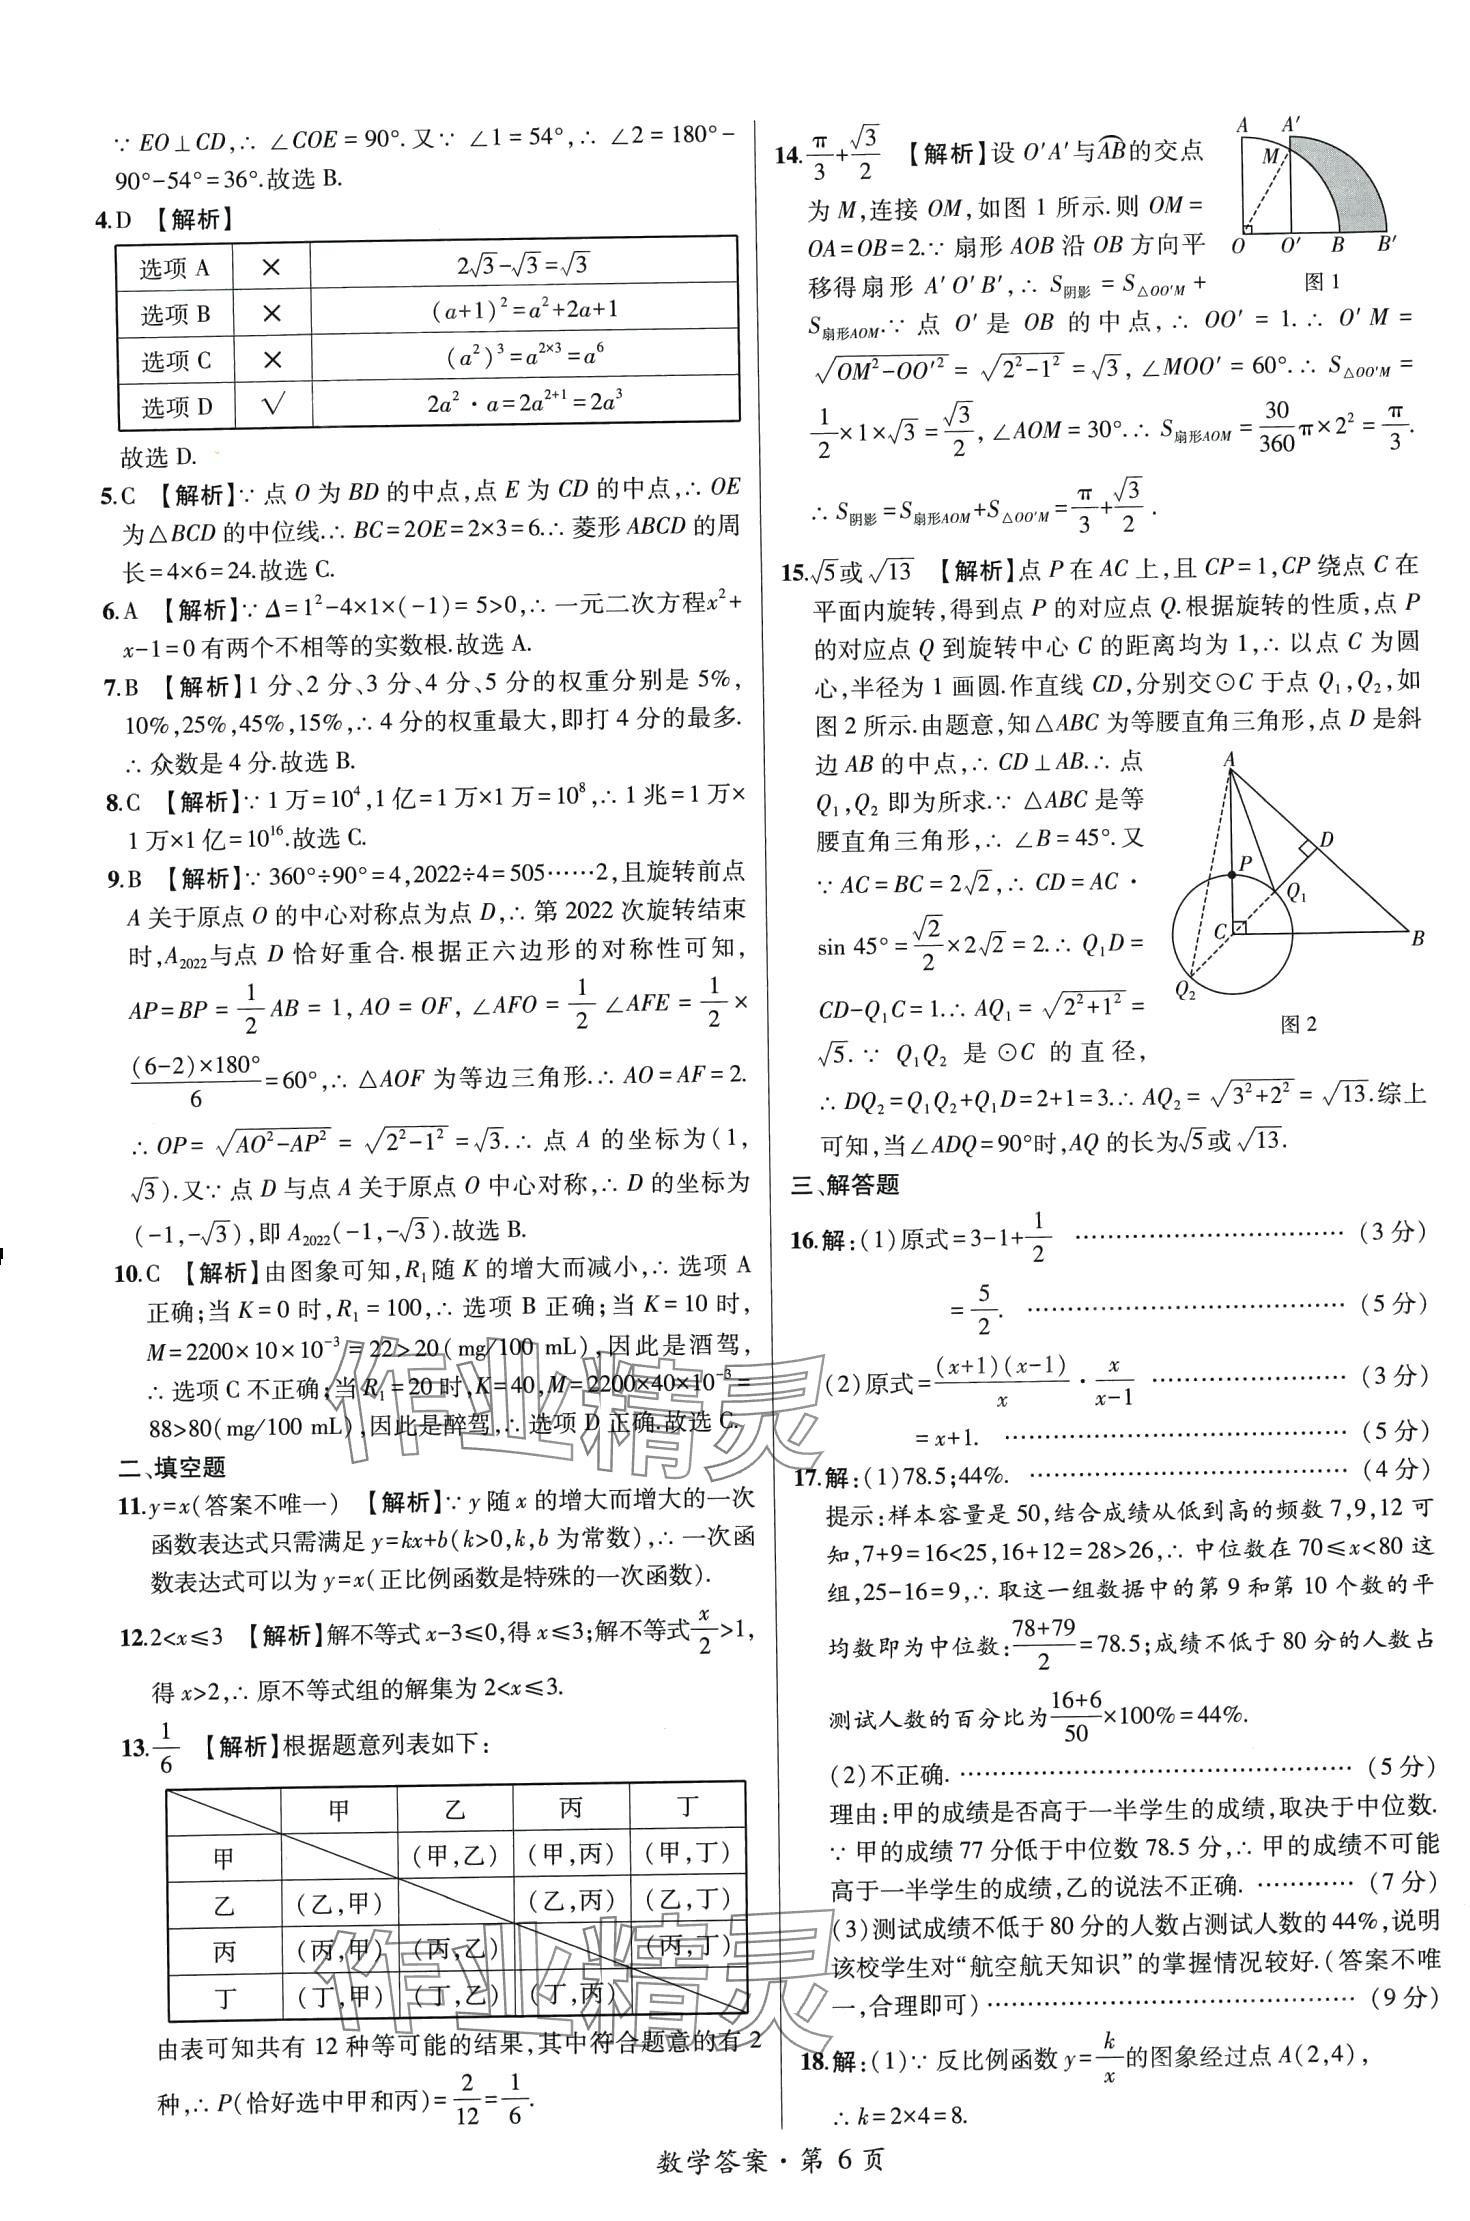 ∵ EO⊥CD,∴ ∠COE=90°.又∵ ∠1=54°,∴ ∠2=180°-
90°-54°=36°.故选 B.
4.D 【解析】
选项 A × 2√3-√3=√3
选项 B × (a+1)²=a²+2a+1
选项 C × (a²)³=a^{2×3}=a⁶
选项 D √ 2a²·a=2a^{2+1}=2a³
故选 D.
5.C 【解析】∵ 点 O 为 BD 的中点,点 E 为 CD 的中点,∴ OE
为△BCD 的中位线.∴ BC=2OE=2×3=6.∴ 菱形 ABCD 的周
长=4×6=24.故选 C.
6.A 【解析】∵ Δ=1²-4×1×(-1)=5>0,∴ 一元二次方程x²+
x-1=0 有两个不相等的实数根.故选 A.
7.B 【解析】1 分、2 分、3 分、4 分、5 分的权重分别是 5%,
10%,25%,45%,15%,∴ 4 分的权重最大,即打 4 分的最多.
∴ 众数是 4 分.故选 B.
8.C 【解析】∵ 1 万=10⁴,1 亿=1 万×1 万=10⁸,∴ 1 兆=1 万×
1 万×1 亿=10¹⁶.故选 C.
9.B 【解析】∵ 360°÷90°=4,2022÷4=505……2,且旋转前点
A 关于原点 O 的中心对称点为点 D,∴ 第 2022 次旋转结束
时,A₂₀₂₂与点 D 恰好重合.根据正六边形的对称性可知,
AP=BP=1/2 AB=1,AO=OF,∠AFO=1/2 ∠AFE=1/2×
(6-2)×180°/6=60°,∴ △AOF 为等边三角形.∴ AO=AF=2.
∴ OP=√(AO²-AP²)=√(2²-1²)=√3.∴ 点 A 的坐标为(1,
√3).又∵ 点 D 与点 A 关于原点 O 中心对称,∴ D 的坐标为
(-1,-√3),即 A₂₀₂₂(-1,-√3).故选 B.
10.C 【解析】由图象可知,R₁随 K 的增大而减小,∴ 选项 A
正确;当 K=0 时,R₁=100,∴ 选项 B 正确;当 K=10 时,
M=2200×10×10⁻³=22>20(mg/100 mL),因此是酒驾,
∴ 选项 C 不正确;当 R₁=20 时,K=40,M=2200×40×10⁻³=
88>80(mg/100 mL),因此是醉驾,∴ 选项 D 正确.故选 C.
二、填空题
11.y=x(答案不唯一) 【解析】∵ y 随 x 的增大而增大的一次
函数表达式只需满足 y=kx+b(k>0,k,b 为常数),∴ 一次函
数表达式可以为 y=x(正比例函数是特殊的一次函数).
12.2<x≤3 【解析】解不等式 x-3≤0,得 x≤3;解不等式x/2>1,
得 x>2,∴ 原不等式组的解集为 2<x≤3.
13.1/6 【解析】根据题意列表如下:
甲 乙 丙 丁
甲 (甲,乙) (甲,丙) (甲,丁)
乙 (乙,甲) (乙,丙) (乙,丁)
丙 (丙,甲) (丙,乙) (丙,丁)
丁 (丁,甲) (丁,乙) (丁,丙)
由表可知共有 12 种等可能的结果,其中符合题意的有 2
种,∴ P(恰好选中甲和丙)=2/12=1/6.
14.π/3+√3/2 【解析】设 O′A′与AB的交点
为 M,连接 OM,如图 1 所示.则 OM=
OA=OB=2.∵ 扇形 AOB 沿 OB 方向平
移得扇形 A′O′B′,∴ S阴影=S△OO′M+
S扇形AOM.∵ 点 O′是 OB 的中点,∴ OO′=1.∴ O′M=
√(OM²-OO′²)=√(2²-1²)=√3,∠MOO′=60°.∴ S△OO′M=
1/2×1×√3=√3/2,∠AOM=30°.∴ S扇形AOM=30/360π×2²=π/3.
∴ S阴影=S扇形AOM+S△OO′M=π/3+√3/2.
A A′
M
O O′ B B′
图 1
15.√5或√13 【解析】点 P 在 AC 上,且 CP=1,CP 绕点 C 在
平面内旋转,得到点 P 的对应点 Q.根据旋转的性质,点 P
的对应点 Q 到旋转中心 C 的距离均为 1,∴ 以点 C 为圆
心,半径为 1 画圆.作直线 CD,分别交⊙C 于点 Q₁,Q₂,如
图 2 所示.由题意,知△ABC 为等腰直角三角形,点 D 是斜
边 AB 的中点,∴ CD⊥AB.∴ 点
Q₁,Q₂ 即为所求.∵ △ABC 是等
腰直角三角形,∴ ∠B=45°.又
∵ AC=BC=2√2,∴ CD=AC·
sin 45°=√2/2×2√2=2.∴ Q₁D=
CD-Q₁C=1.∴ AQ₁=√(2²+1²)=
√5.∵ Q₁Q₂ 是⊙C 的直径,
∴ DQ₂=Q₁Q₂+Q₁D=2+1=3.∴ AQ₂=√(3²+2²)=√13.综上
可知,当∠ADQ=90°时,AQ 的长为√5或√13.
A
D
P
Q₁
C
B
Q₂
图 2
三、解答题
16.解:(1)原式=3-1+1/2 ……………………………(3 分)
=5/2. ……………………………(5 分)
(2)原式=(x+1)(x-1)/x·x/(x-1) ……………………(3 分)
=x+1. ……………………………(5 分)
17.解:(1)78.5;44%. ……………………………(4 分)
提示:样本容量是 50,结合成绩从低到高的频数 7,9,12 可
知,7+9=16<25,16+12=28>26,∴ 中位数在 70≤x<80 这
组,25-16=9,∴ 取这一组数据中的第 9 和第 10 个数的平
均数即为中位数:(78+79)/2=78.5;成绩不低于 80 分的人数占
测试人数的百分比为(16+6)/50×100%=44%.
(2)不正确. ……………………………………(5 分)
理由:甲的成绩是否高于一半学生的成绩,取决于中位数.
∵ 甲的成绩 77 分低于中位数 78.5 分,∴ 甲的成绩不可能
高于一半学生的成绩,乙的说法不正确. …………(7 分)
(3)测试成绩不低于 80 分的人数占测试人数的 44%,说明
该校学生对“航空航天知识”的掌握情况较好.(答案不唯
一,合理即可)……………………………………(9 分)
18.解:(1)∵ 反比例函数 y=k/x的图象经过点 A(2,4),
∴ k=2×4=8.
数学答案·第 6 页
作业精灵
作业精灵